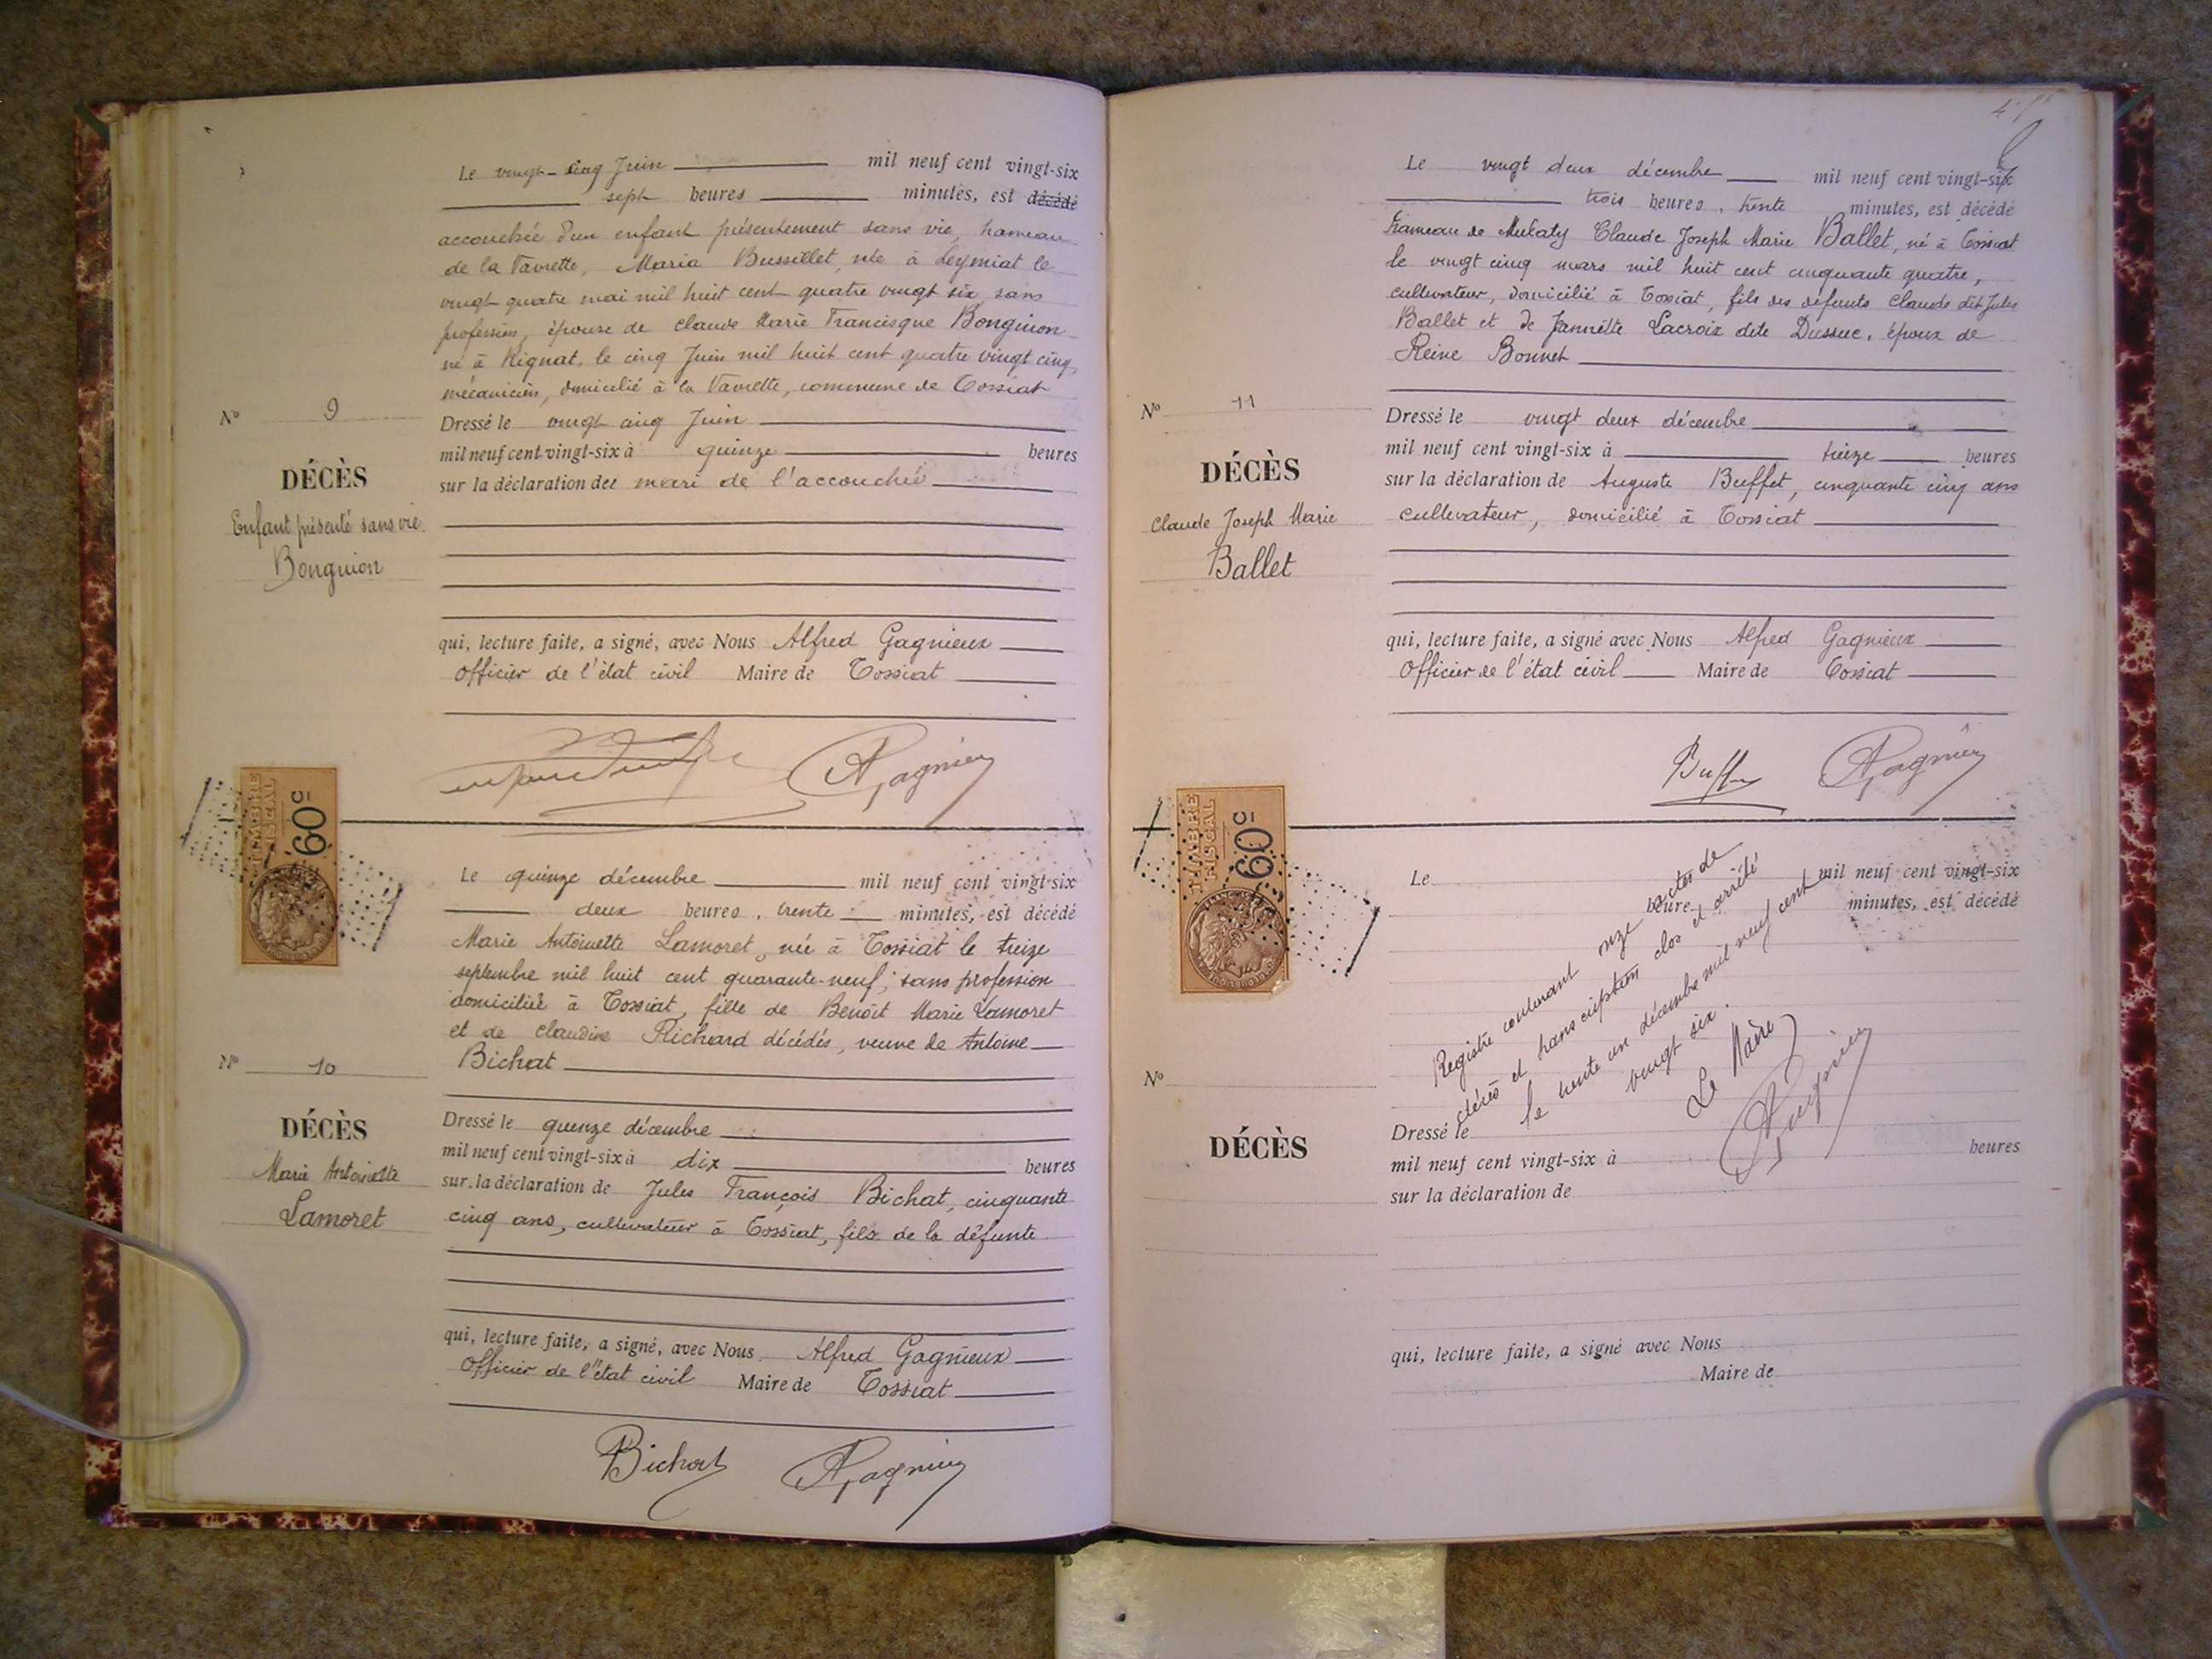 Le vingt-cinq Juin mil neuf cent vingt-six
sept heures minutes, est décédé
accouchée d'un enfant présentement sans vie, hameau
de la Vavrette, Maria Bussillet, née à Leymiat le
vingt quatre mai mil huit cent quatre vingt six, sans
profession, épouse de Claude Marie Francisque Bonguion
né à Rignat, le cinq Juin mil huit cent quatre vingt cinq,
mécanicien, domicilié à la Vavrette, commune de Tossiat
N° 9
Dressé le vingt cinq Juin
mil neuf cent vingt-six à quinze heures
DÉCÈS
sur la déclaration de mari de l'accouchée
Enfant présenté sans vie
Bonguion
qui, lecture faite, a signé, avec Nous Alfred Gagnieux
Officier de l'état civil Maire de Tossiat
AGagnieux
TIMBRE
FISCAL
60c
Le quinze décembre mil neuf cent vingt-six
deux heures, trente minutes, est décédé
Marie Antoinette Lamoret, née à Tossiat le treize
septembre mil huit cent quarante-neuf, sans profession
domiciliée à Tossiat, fille de Benoît Marie Lamoret
et de Claudine Richard décédés, veuve de Antoine
N° 10
Bichat
DÉCÈS
Dressé le quinze décembre
mil neuf cent vingt-six à dix heures
Marie Antoinette
Lamoret
sur la déclaration de Jules François Bichat, cinquante
cinq ans, cultivateur à Tossiat, fils de la défunte
qui, lecture faite, a signé, avec Nous Alfred Gagnieux
Officier de l'état civil Maire de Tossiat
Bichat AGagnieux
Le vingt deux décembre mil neuf cent vingt-six
trois heures, trente minutes, est décédé
hameau de Mukaty Claude Joseph Marie Ballet, né à Tossiat
le vingt cinq mars mil huit cent cinquante quatre,
cultivateur, domicilié à Tossiat, fils des défunts Claude dit Jules
Ballet et de Jannette Lacroix dite Dussuc, époux de
Reine Bonnet
N° 11
Dressé le vingt deux décembre
mil neuf cent vingt-six à treize heures
DÉCÈS
sur la déclaration de Auguste Buffet, cinquante cinq ans
cultivateur, domicilié à Tossiat
Claude Joseph Marie
Ballet
qui, lecture faite, a signé avec Nous Alfred Gagnieux
Officier de l'état civil Maire de Tossiat
Buffet AGagnieux
TIMBRE
FISCAL
60c
Le mil neuf cent vingt-six
heure minutes, est décédé
Registre contenant onze actes de
décès et transcription clos et arrêté
le trente un décembre mil neuf cent
vingt six.
Le Maire
AGagnieux
N°
DÉCÈS
Dressé le
mil neuf cent vingt-six à heures
sur la déclaration de
qui, lecture faite, a signé avec Nous
Maire de